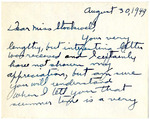 August 30, 1949
Dear Miss Stockwell,
Your very
lengthy, but interesting letter
was received and I certainly
have not shown my
appreciation, but am sure
you will understand
when I tell you that
summer time is a very